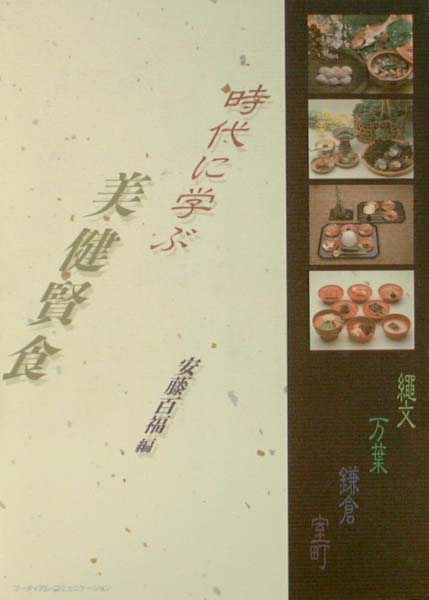 時代に学ぶ
美健賢食
安藤百福 編
縄文
万葉
鎌倉
室町
フーディアム・コミュニケーション